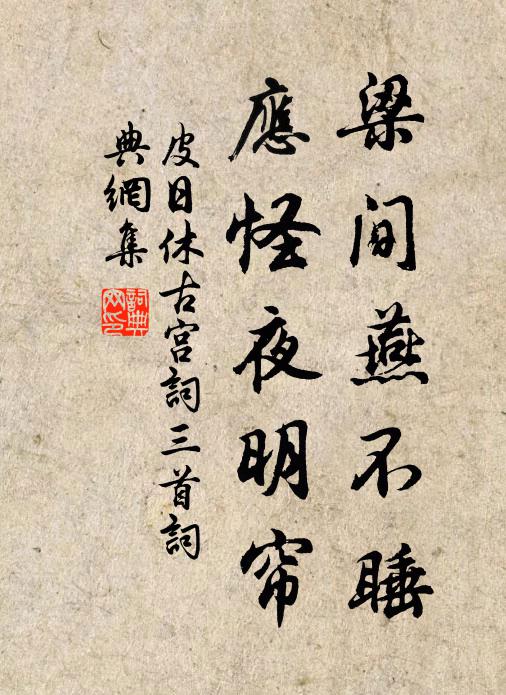 梁间燕不睡
應怪夜明帘
皮日休古宫詞三首詞
典網集
詞典
网印